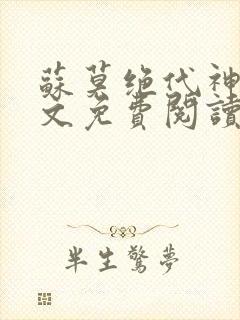 蘇莫绝代神
文免費閱讀
半生驚夢